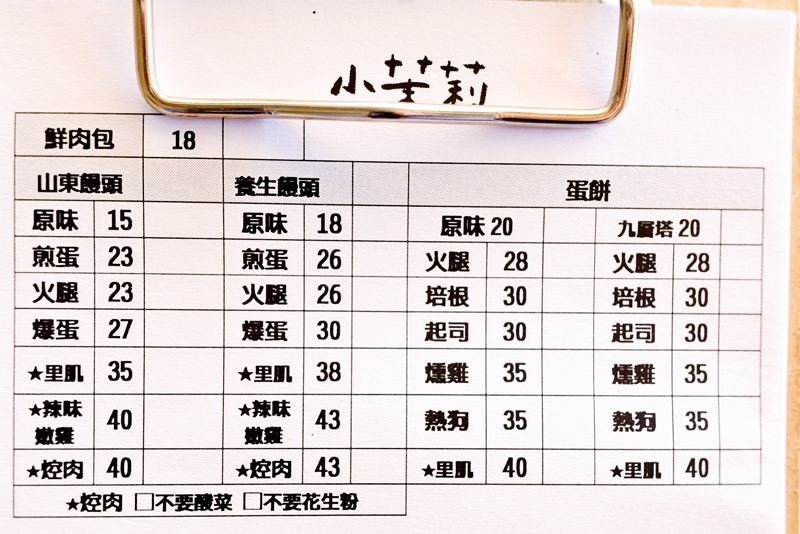 小茉莉
鮮肉包 18
山東饅頭 養生饅頭 蛋餅
原味 15 原味 18 原味 20 九層塔 20
煎蛋 23 煎蛋 26 火腿 28 火腿 28
火腿 23 火腿 26 培根 30 培根 30
爆蛋 27 爆蛋 30 起司 30 起司 30
★里肌 35 ★里肌 38 燻雞 35 燻雞 35
★辣味嫩雞 40 ★辣味嫩雞 43 熱狗 35 熱狗 35
★焢肉 40 ★焢肉 43 ★里肌 40 ★里肌 40
★焢肉 □不要酸菜 □不要花生粉